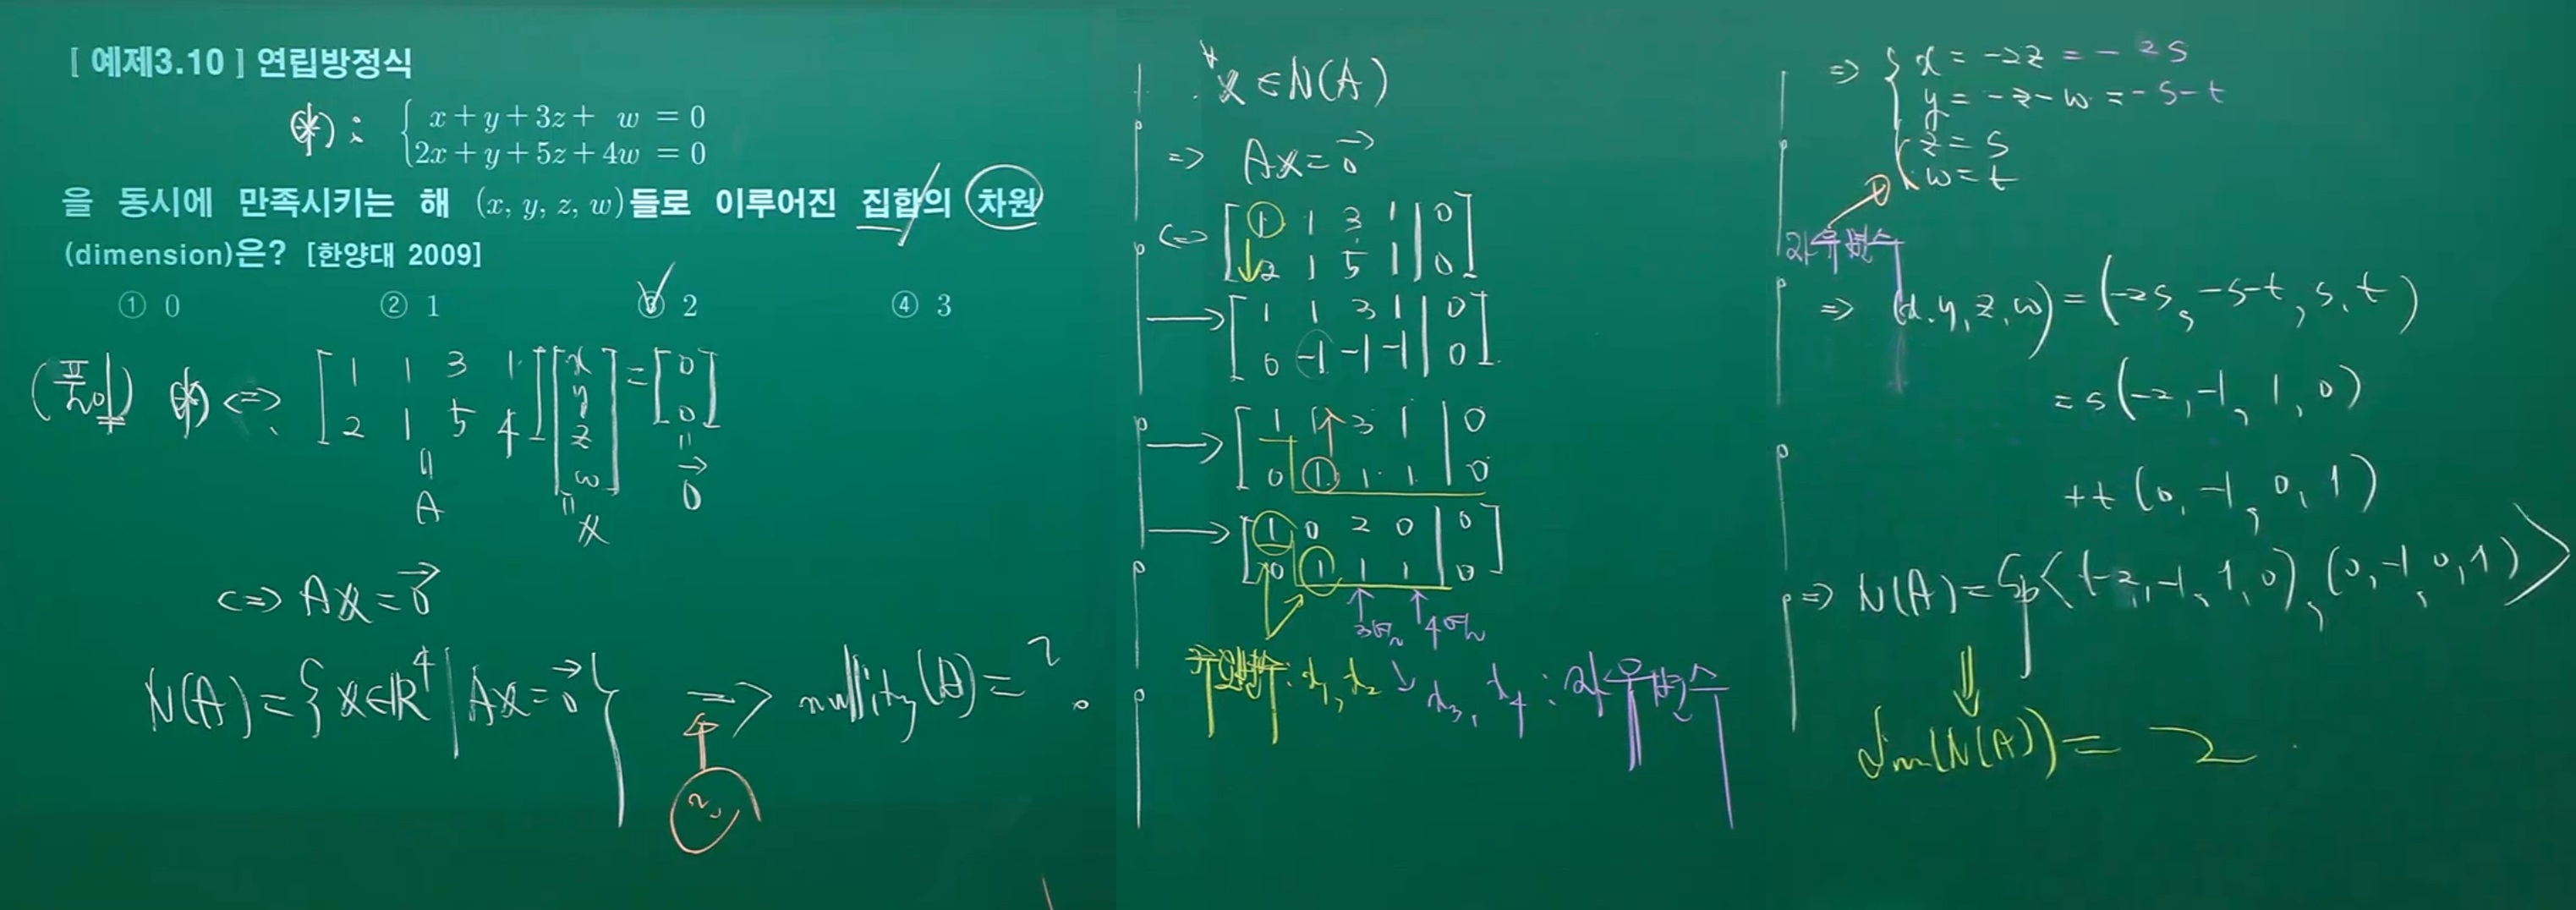 [ 예제3.10 ] 연립방정식
(*) : { x + y + 3z + w = 0
2x + y + 5z + 4w = 0
을 동시에 만족시키는 해 (x, y, z, w)들로 이루어진 집합의 차원
(dimension)은? [한양대 2009]
① 0 ② 1 ③ 2 ④ 3
(풀이) (*) <=> [1 1 3 1 [x = [0
2 1 5 4] y 0]
z
w]
= A = x = 0
<=> Ax = 0
N(A) = { x ∈ R⁴ | Ax = 0 } => nullity(A) = ?
2.
∀x ∈ N(A)
=> Ax = 0
<=> [1 1 3 1 | 0
2 1 5 1 | 0]
→ [1 1 3 1 | 0
0 -1 -1 -1 | 0]
→ [1 1 3 1 | 0
0 1 1 1 | 0
→ [1 0 2 0 | 0
0 1 1 1 | 0]
3열 4열
x₁, x₂ x₃, x₄ : 자유변수
=> { x = -2z = -2s
y = -z - w = -s-t
z = s
w = t
자유변수
=> (x, y, z, w) = (-2s, -s-t, s, t)
= s(-2, -1, 1, 0)
+ t(0, -1, 0, 1)
=> N(A) = Sp<(-2, -1, 1, 0), (0, -1, 0, 1)>
dim(N(A)) = 2